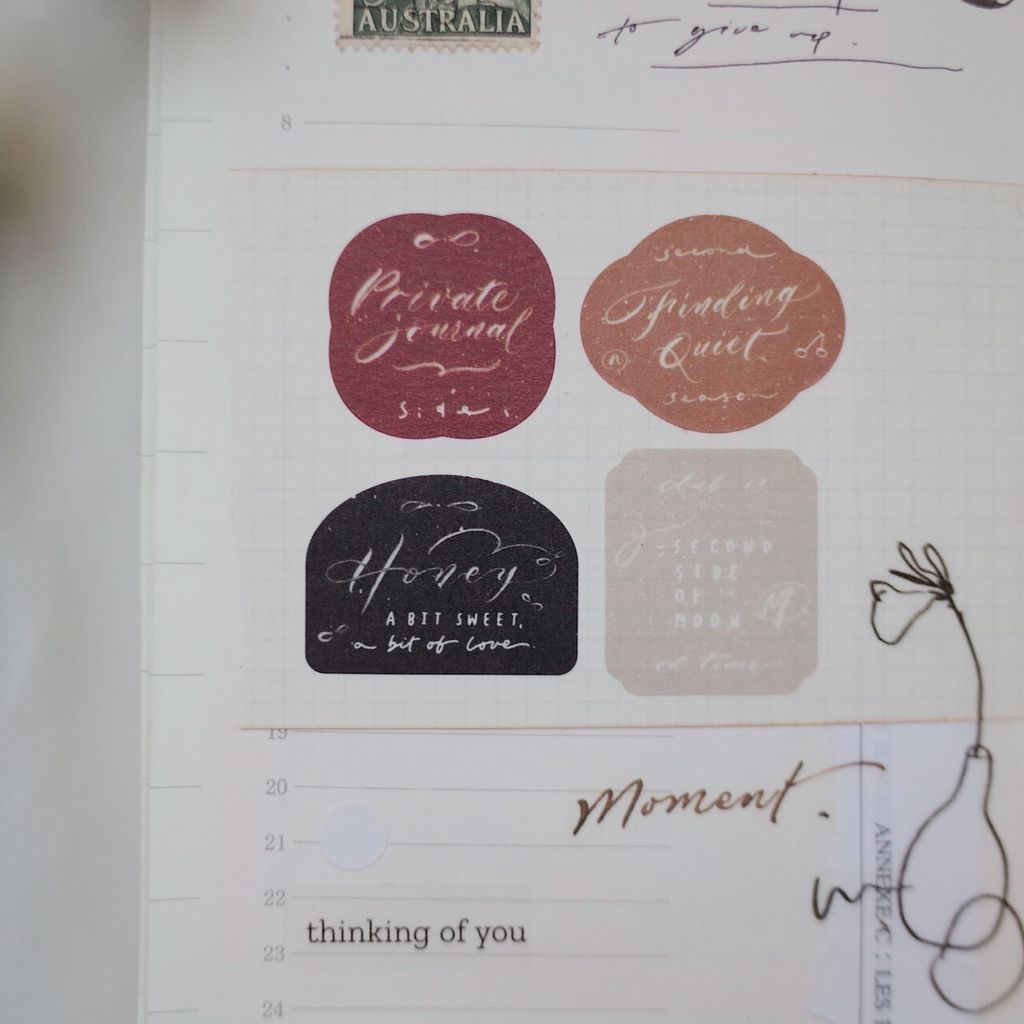 AUSTRALIA
to give up.
8
Private
journal
side.
second
Finding
Quiet
n
season
Honey
A BIT SWEET,
a bit of love
club 13
SECOND
SIDE
OF
MOON
on time
19
20
Moment.
21
ANNEXE
22
thinking of you
23
LES
24